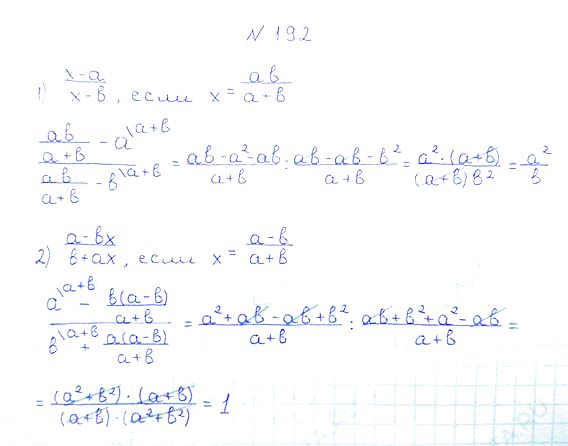 N 192
1) x-a / x-b, если x = ab / a+b
(ab/(a+b) - a^\a+b) / (ab/(a+b) - b^\a+b) = (ab-a²-ab)/(a+b) : (ab-ab-b²)/(a+b) = (a²·(a+b))/((a+b)b²) = a²/b
2) a-bx / b+ax, если x = a-b / a+b
(a^\a+b - b(a-b)/(a+b)) / (b^\a+b + a(a-b)/(a+b)) = (a²+ab-ab+b²)/(a+b) : (ab+b²+a²-ab)/(a+b) =
= ((a²+b²)·(a+b))/((a+b)·(a²+b²)) = 1